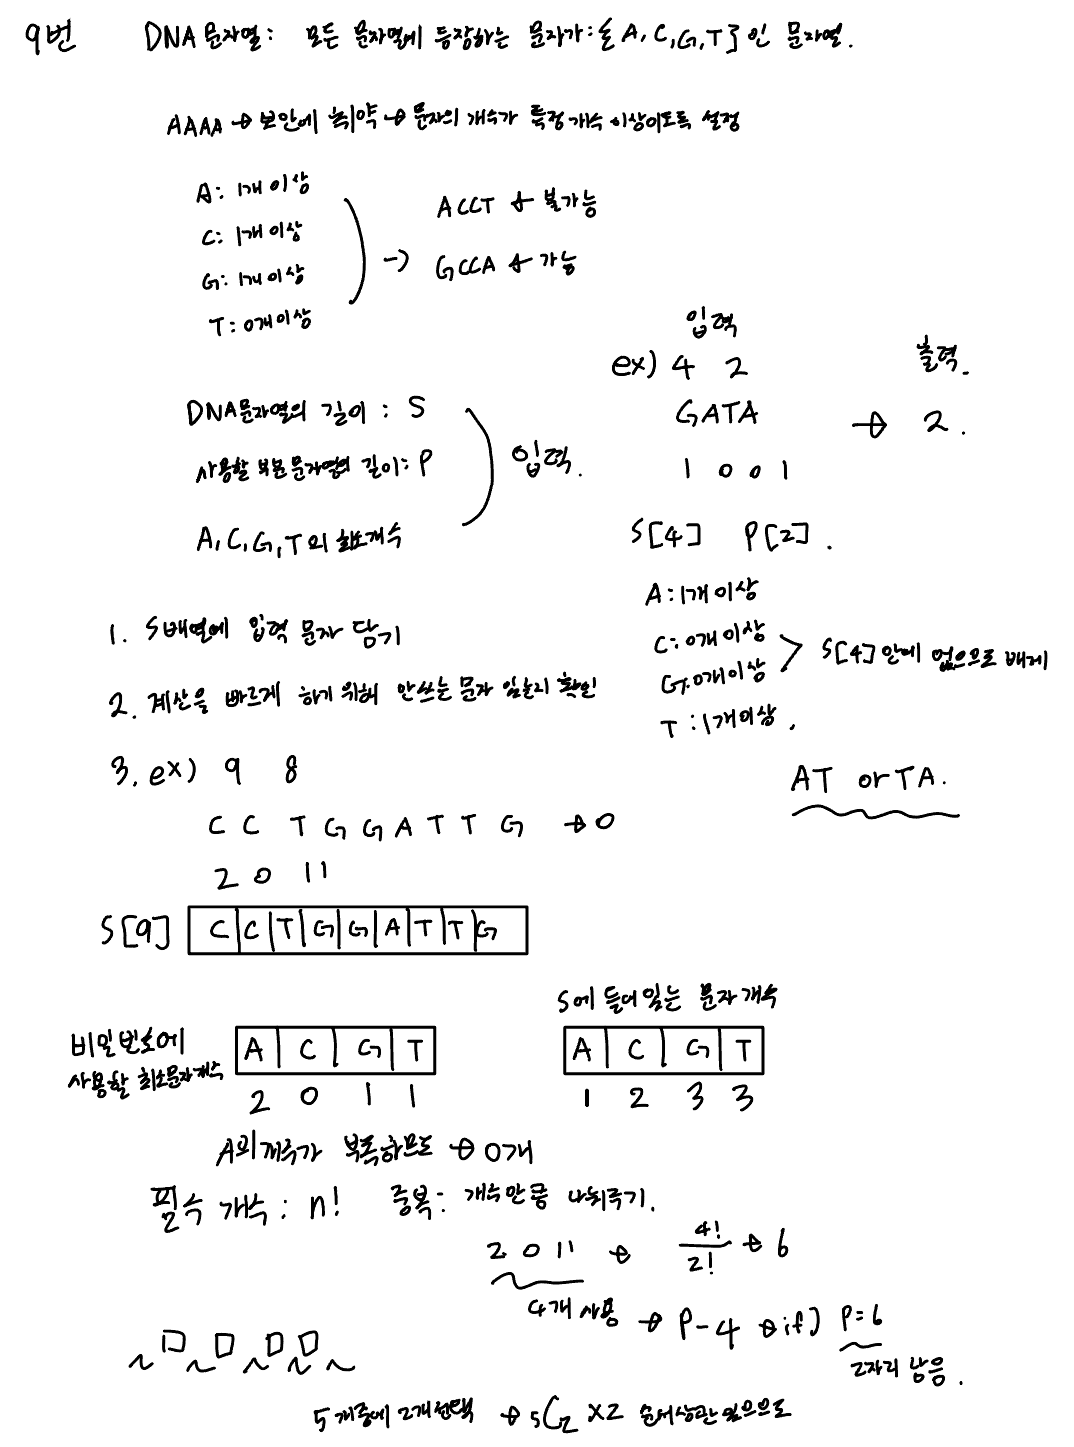 9번 DNA 문자열 : 모든 문자열에 등장하는 문자가 : {A, C, G, T}인 문자열.
AAAA → 보안에 취약 → 문자의 개수가 특정 개수 이상이도록 설정
A : 1개 이상
C : 1개 이상
G : 1개 이상
T : 0개 이상
→ ACCT → 불가능
GCCA → 가능
DNA 문자열의 길이 : S
사용할 부분문자열의 길이 : P
A, C, G, T의 최소개수
입력.
입력
ex) 4 2
GATA
1 0 0 1
출력.
→ 2.
S[4] P[2].
A : 1개 이상
C : 0개 이상
G : 0개 이상
> S[4] 안에 없으므로 배제
T : 1개 이상.
AT or TA.
1. S배열에 입력 문자 담기
2. 계산을 빠르게 하기 위해 안쓰는 문자 있는지 확인
3. ex) 9 8
C C T G G A T T G → 0
2 0 1 1
S[9] C C T G G A T T G
비밀번호에
사용할 최소문자개수
A C G T
2 0 1 1
S에 들어있는 문자개수
A C G T
1 2 3 3
A의 개수가 부족하므로 → 0개
필수 개수 : n! 중복 : 개수만큼 나눠주기.
2 0 1 1 → 4!/2! → 6
4개 사용 → P-4 → if) P=6
2자리 남음.
5개중에 2개선택 → 5C2 X2 순서상관 있으므로